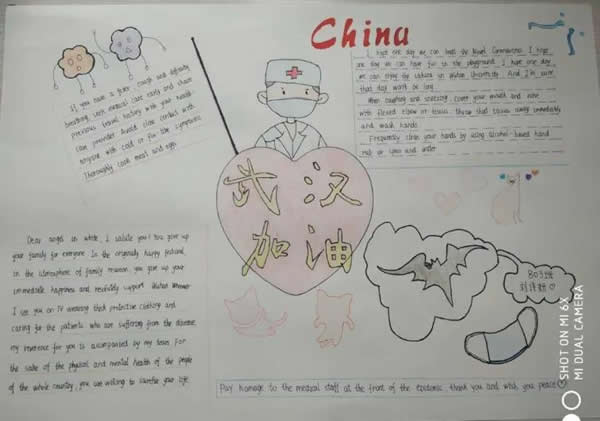 China
If you have a fever cough and difficulty
breathing, seek medical care early and share
previous travel history with your health
care provider Avoid close contact with
anyone with cold or flu like symptoms
Thoroughly cook meat and eggs.
I hope one day we can beat the Novel Coronavirus. I hope
one day we can have fun in the playground. I hope one day
we can enjoy the in Wuhan University. And I'm sure
that day won't be long
When coughing and sneezing, cover your mouth and nose
with flexed elbow or tissue. throw that tissue away immediately
and wash hands.
Frequently clean your hands by using alcohol-based hand
rub or soap and water
武汉
加油
Dear angel in white, I salute you! You give up
your family for everyone. In the originally happy festival,
in the atmosphere of family reunion, you give up your
immediate happiness and resolutely support Wuhan
I see you on TV wearing thick protective clothing and
caring for the patients who are suffering from the disease,
my reverence for you is accompanied by my tears For
the sake of the physical and mental health of the people
of the whole country, you are willing to sacrifice your life.
Pay homage to the medical staff at the front of the epidemic, thank you and wish you peace
SHOT ON MI 6X
MI DUAL CAMERA